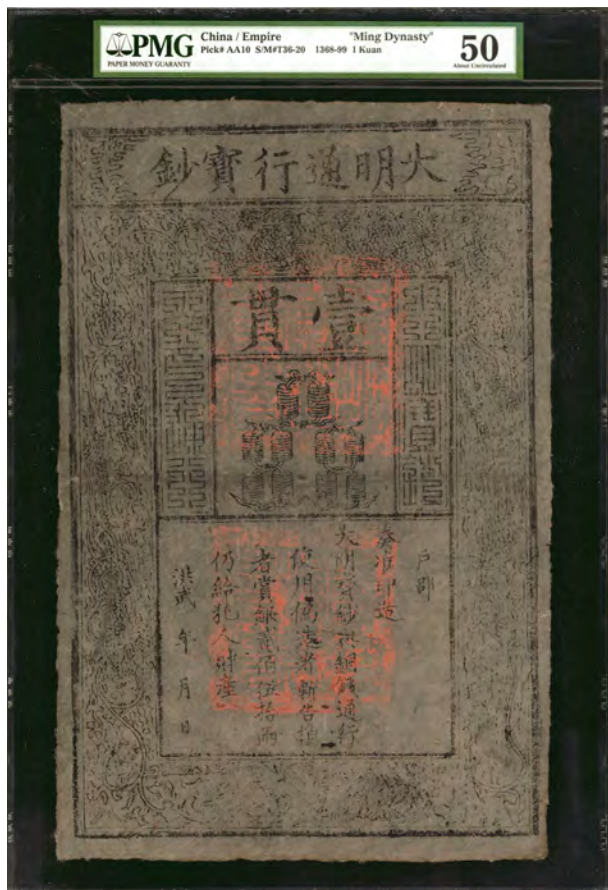 PMG
PAPER MONEY GUARANTY
China / Empire "Ming Dynasty"
Pick# AA10 S/M#T36-20 1368-99 1 Kuan
50
About Uncirculated
大明通行寶鈔
壹貫
戶部
奏准印造
大明寶鈔與銅錢通行
使用偽造者斬告捕
者賞銀佰伍拾兩
仍給犯人財產
洪武 年 月 日